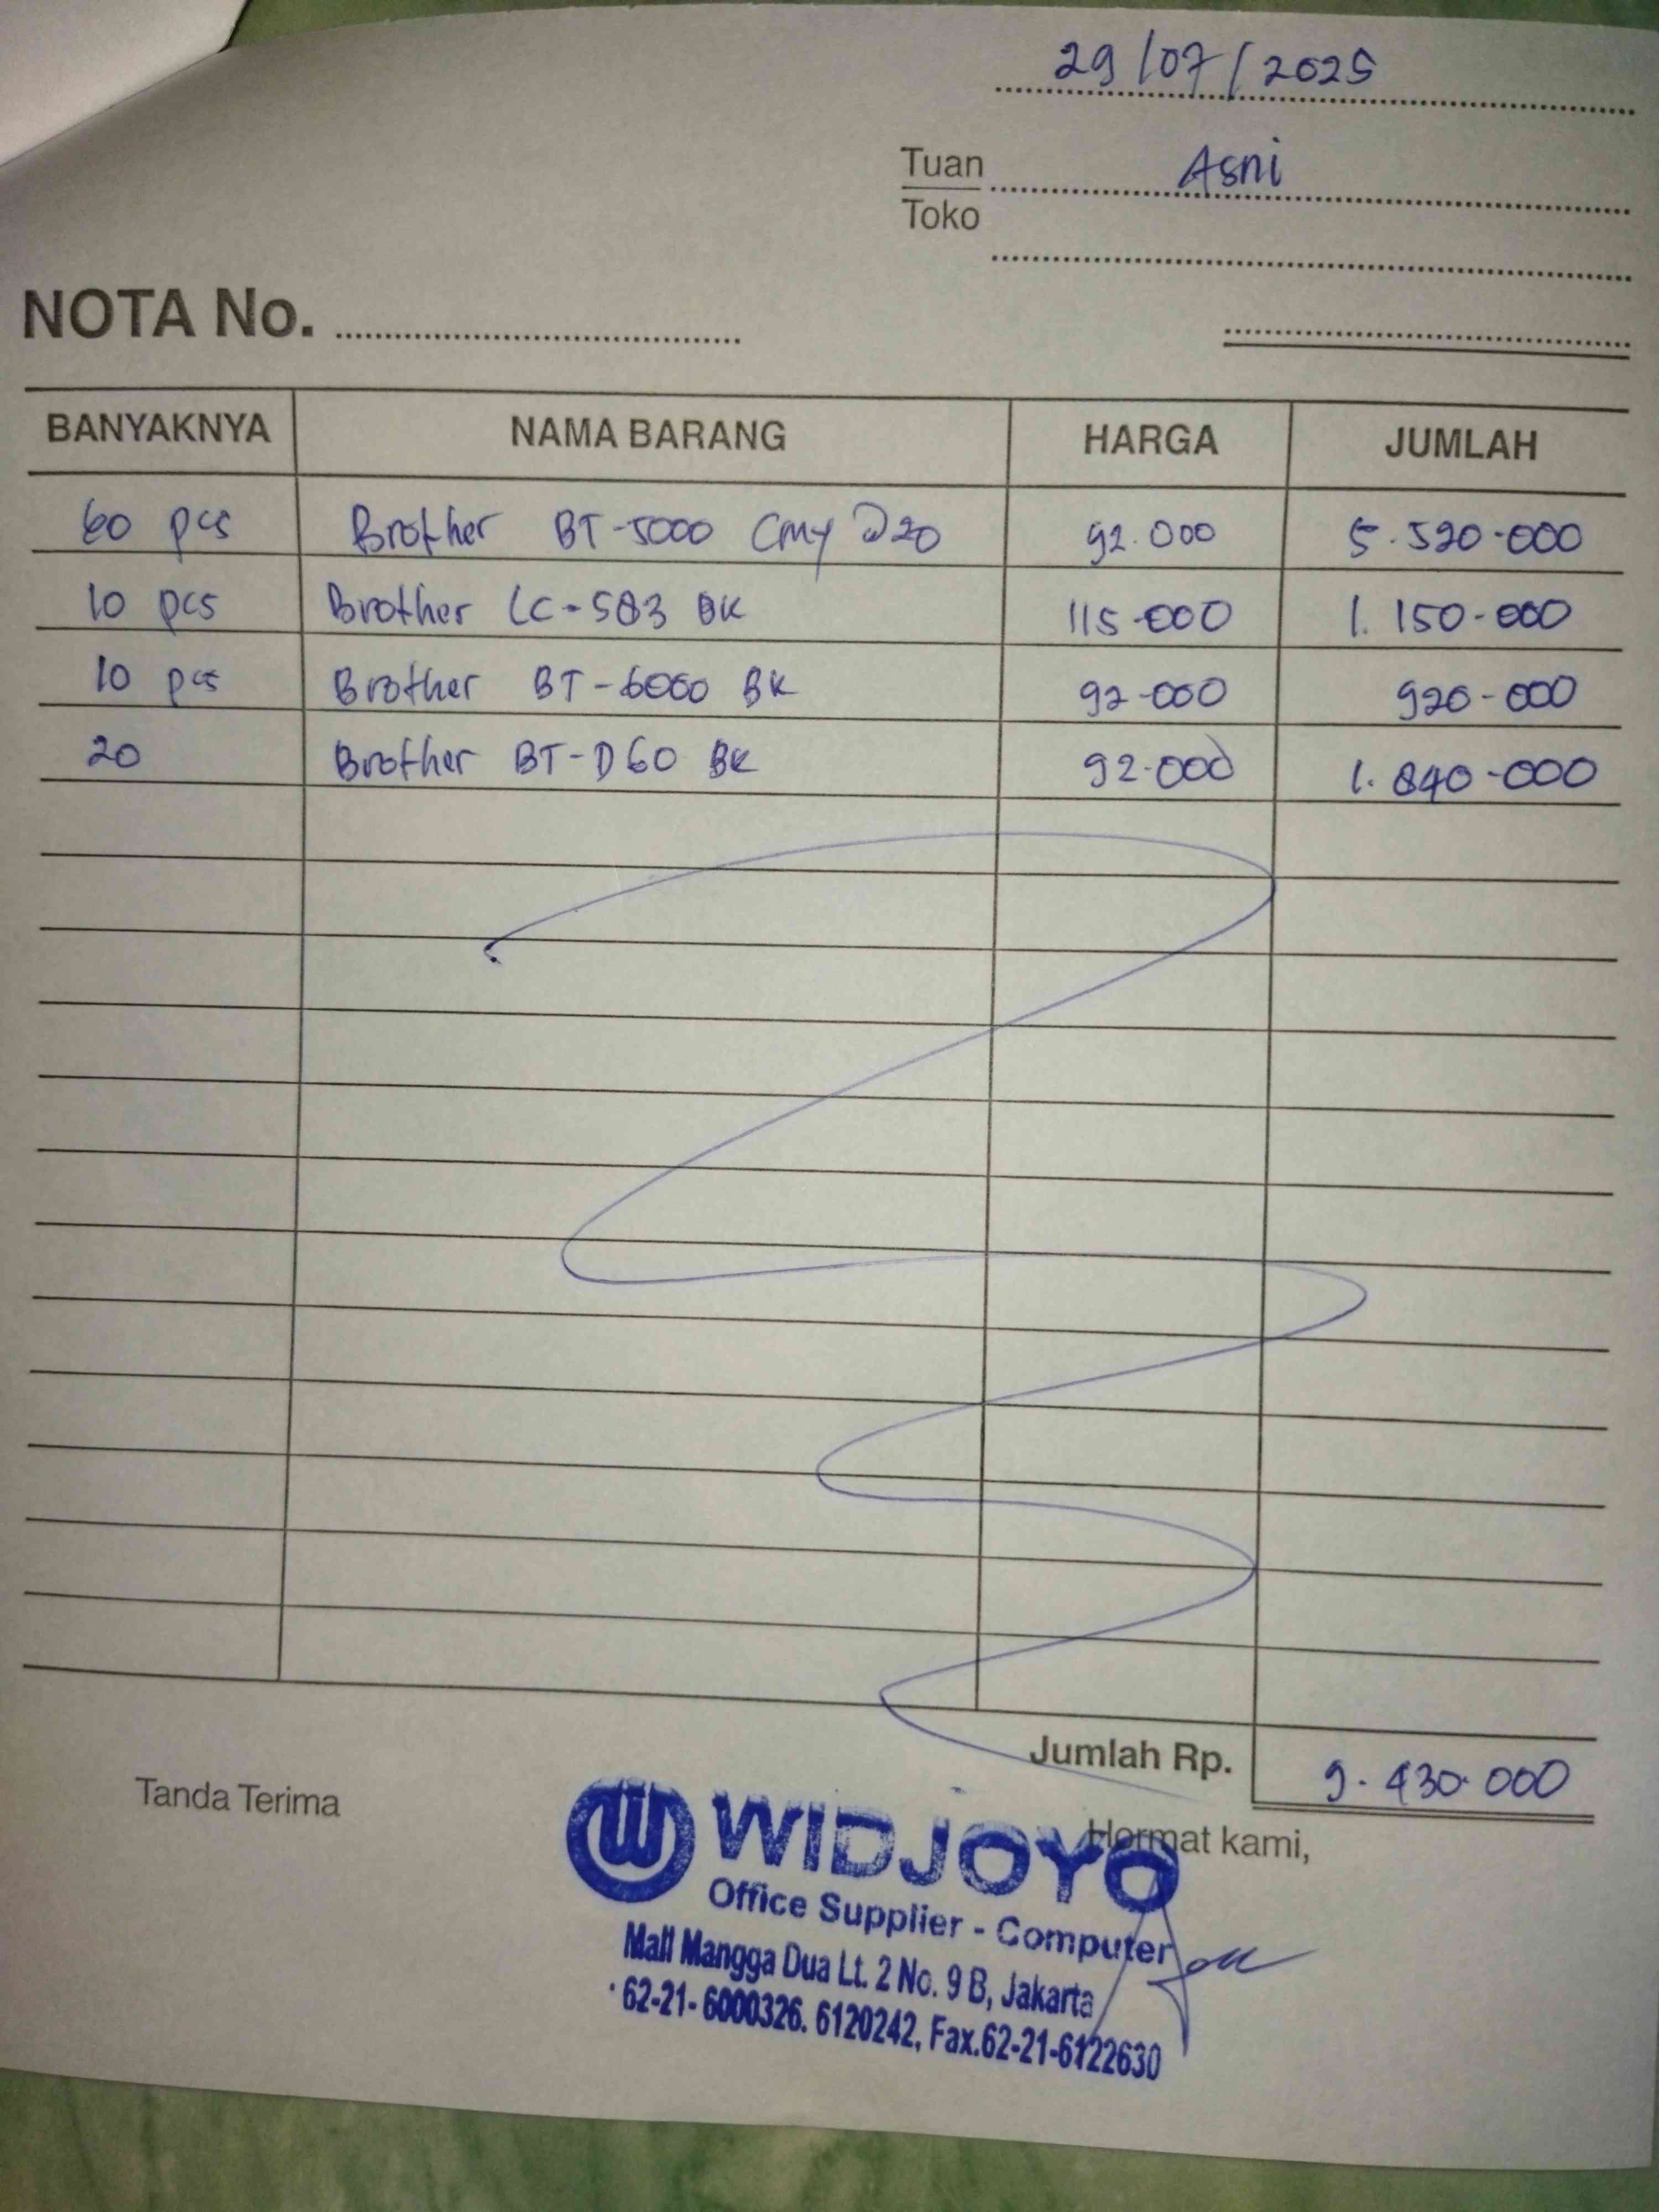 29/07/2025
Tuan Asni
Toko
NOTA No.
BANYAKNYA NAMA BARANG HARGA JUMLAH
60 pcs Brother BT-5000 CMY @20 92.000 5.520.000
10 pcs Brother LC-583 BK 115.000 1.150.000
10 pcs Brother BT-6000 BK 92.000 920.000
20 Brother BT-D60 BK 92.000 1.840.000
Jumlah Rp. 9.430.000
Tanda Terima
Hormat kami,
WIDJOYO
Office Supplier - Computer
Mall Mangga Dua Lt. 2 No. 9 B, Jakarta
62-21-6000326. 6120242, Fax.62-21-6122630